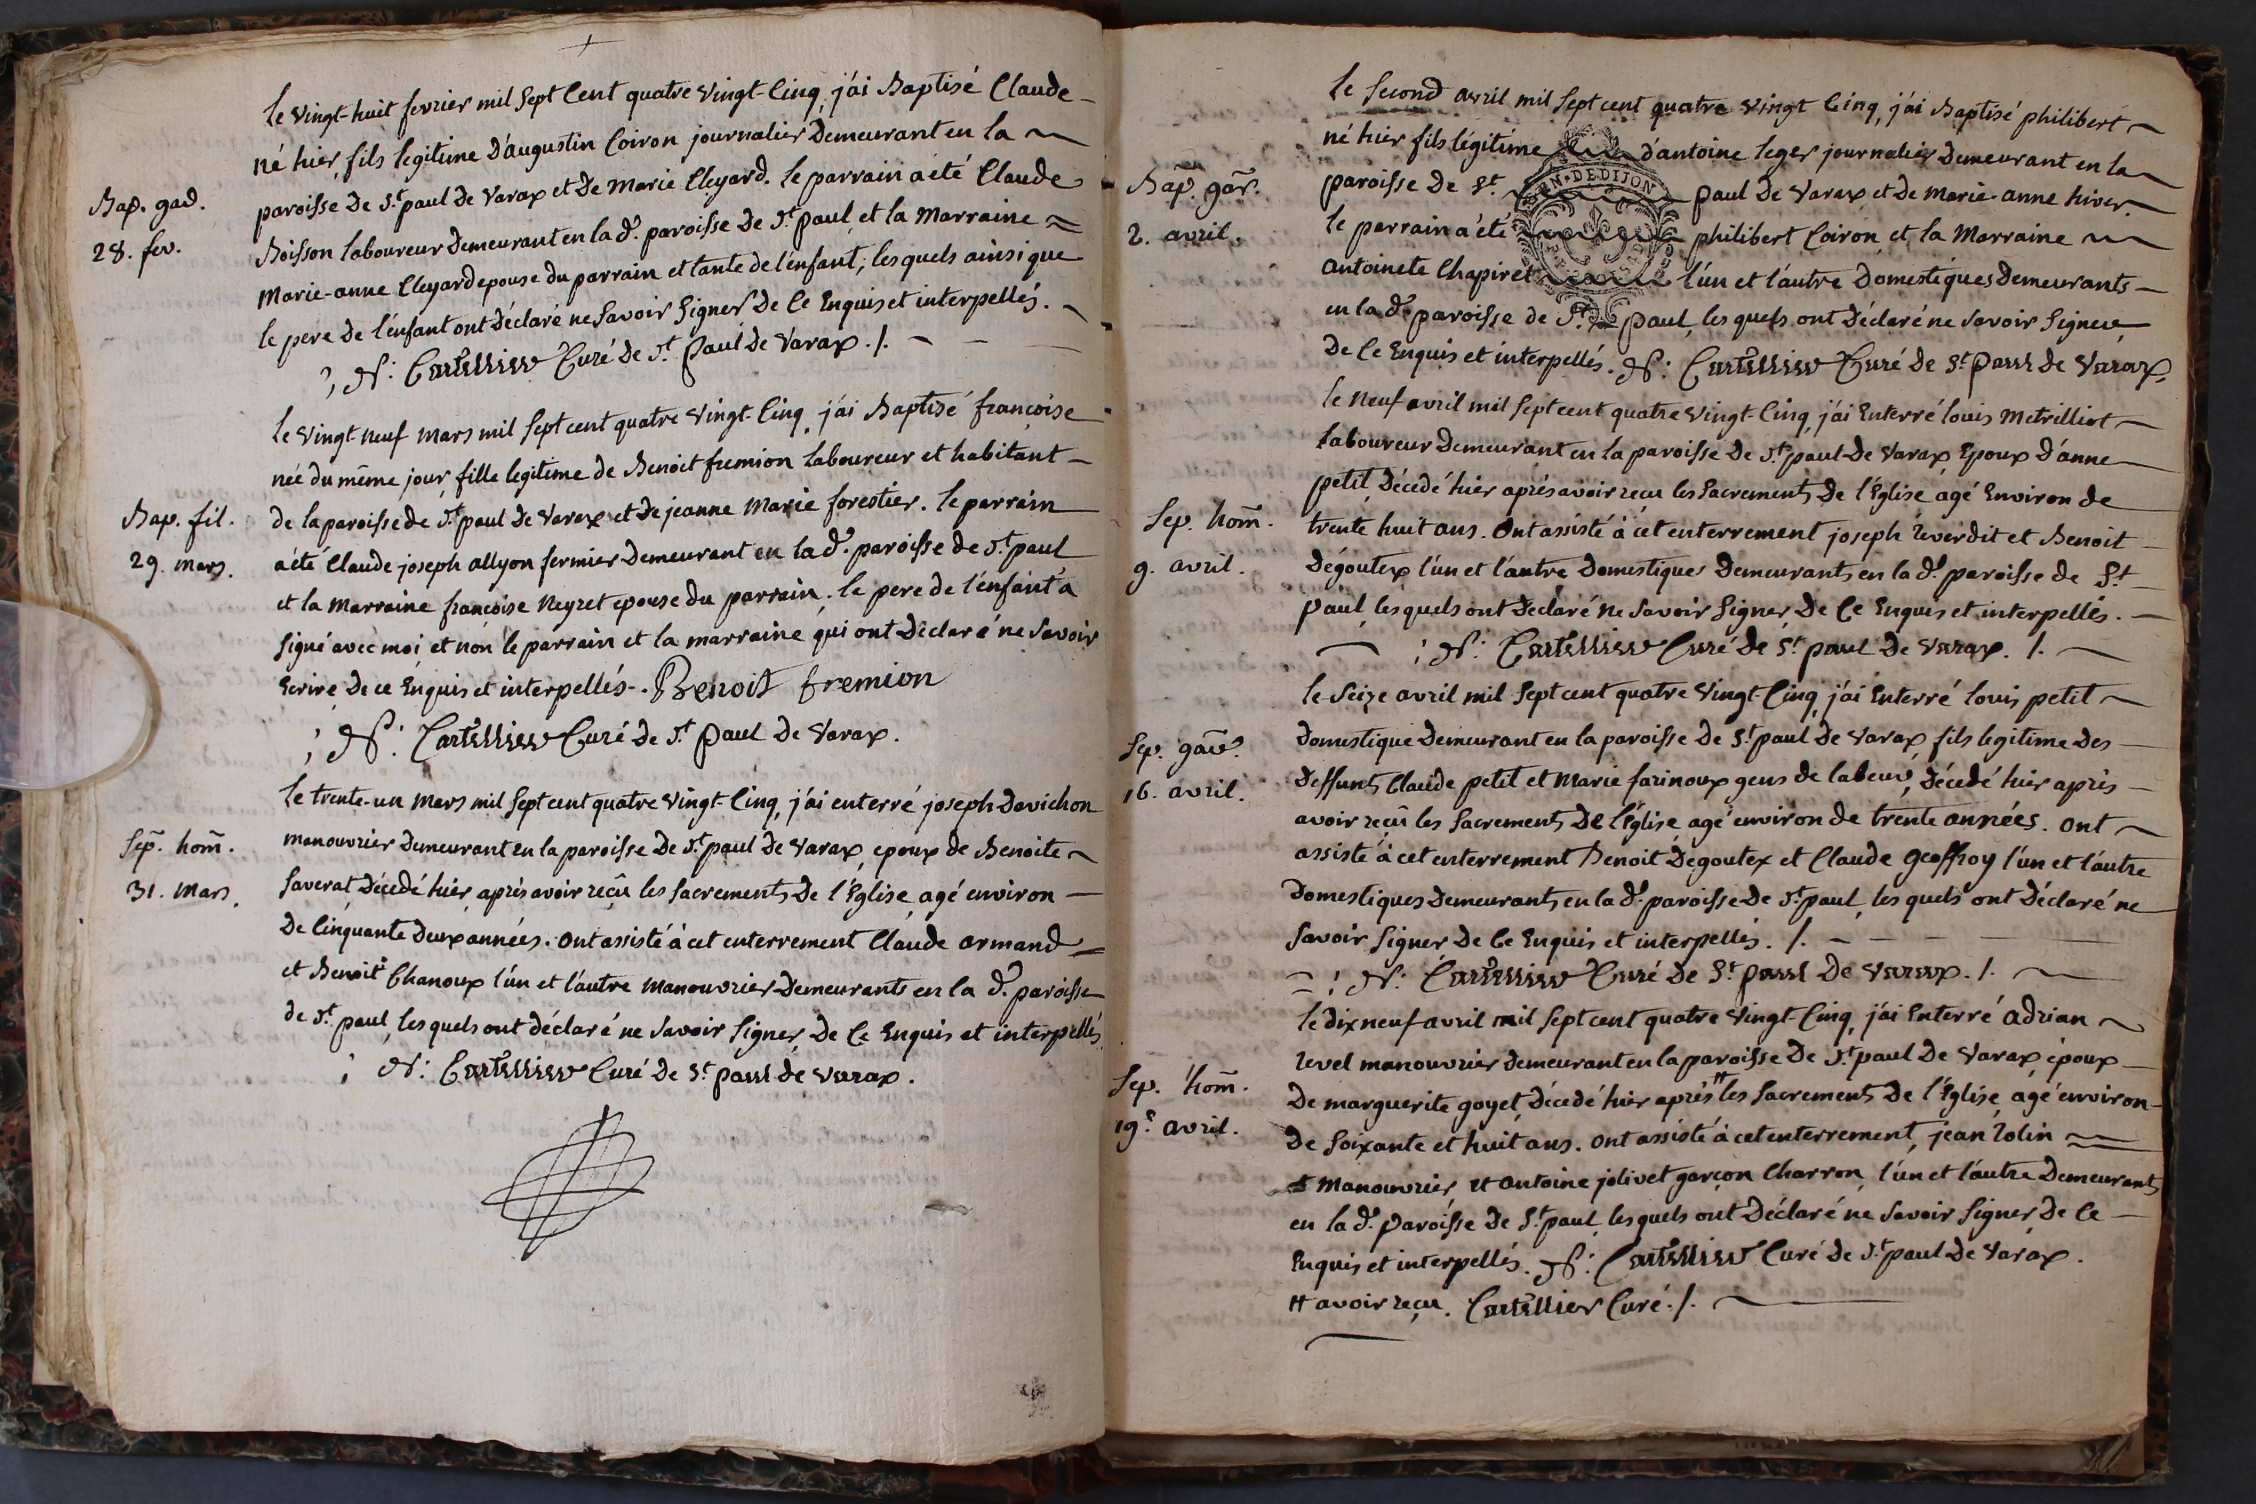 le vingt-huit fevrier mil sept Cent quatre vingt-Cinq, j'ai Baptisé Claude
né hier, fils legitime D'augustin Coiron journalier Demeurant en la
Bap. gad.
paroisse de St. paul de Varax et De Marie Cleyard. le parrain a été Claude
28. fev.
Boisson laboureur Demeurant en la d. paroisse de St. paul, et la Marraine
Marie-anne Cleyard epouse du parrain et tante de l'enfant; les quels ainsi que
le pere de l'enfant ont déclaré ne savoir signer De Ce Enquis et interpellés.
N: Cartellier Curé de St. Paul de Varax ./.
le vingt neuf Mars mil sept cent quatre vingt-Cinq, j'ai Baptisé françoise
née du même jour, fille legitime de Benoit fremion laboureur et habitant
Bap. fil.
de la paroisse de St. paul de Varax et de jeanne Marie forestier. le parrain
29. mars.
a été Claude joseph allyon fermier Demeurant en la d. paroisse de St. paul
et la Marraine françoise Neyret epouse du parrain. le pere de l'enfant a
signé avec moi et non le parrain et la marraine qui ont Déclaré ne savoir
Ecrire De ce Enquis et interpellés. Benoit fremion
N: Cartellier Curé de St. Paul de Varax.
le trente-un Mars mil sept cent quatre vingt-Cinq, j'ai enterré joseph Davichon
Sep. hom.
manouvrier Demeurant en la paroisse de St. paul de Varax, epoux de Benoite
31. Mars.
Saverat Décedé hier après avoir reçû les sacrements de l'Eglise, agé environ
De Cinquante Deux années. Ont assisté à cet enterrement Claude armand
et Benoit Chanoux l'un et l'autre Manouvrier Demeurants en la d. paroisse
de St. paul, les quels ont déclaré ne savoir signer De Ce Enquis et interpellés.
N: Cartellier Curé de St. paul de Varax.
le second avril mil sept cent quatre vingt Cinq, j'ai Baptisé philibert
né hier fils légitime d'antoine leger journalier Demeurant en la
Bap. gar.
paroisse de St. paul de Varax et de Marie-anne hiver.
2. avril.
le parrain a été philibert Coiron et la Marraine
BN. DE DIJON
antoinete Chapiret l'un et l'autre Domestiques Demeurants
en la d. paroisse de St. paul, les quels ont Déclaré ne savoir signer
De Ce Enquis et interpellés. N: Cartellier Curé de St. paul de Varax.
le Neuf avril mil sept cent quatre vingt-Cinq, j'ai Enterré louis Metrilliot
laboureur Demeurant en la paroisse de St. paul de Varax Epoux D'anne
petit, Décedé hier après avoir recu les Sacrements De l'Eglise agé Environ de
Sep. hom.
trente huit ans. Ont assisté à cet enterrement joseph Reverdit et Benoit
9. avril.
Dégoutex l'un et l'autre Domestiques Demeurants en la d. paroisse de St.
paul, lesquels ont Declaré ne savoir signer De Ce Enquis et interpellés.
N: Cartellier Curé de St. paul de Varax. /.
le Seize avril mil sept cent quatre vingt-Cinq, j'ai Enterré louis petit
Sep. gar.
Domestique Demeurant en la paroisse de St. paul de Varax fils legitime des
16. avril.
Deffunts Claude petit et Marie farinoux gens de labeur, Décedé hier après
avoir reçû les Sacrements De l'Eglise agé environ de trente années. ont
assisté à cet enterrement Benoit Degoutex et Claude Geoffroy l'un et l'autre
Domestiques Demeurants en la d. paroisse de St. paul, les quels ont Déclaré ne
savoir signer De Ce Enquis et interpellés. /.
N: Cartellier Curé de St. paul de Varax. /.
le dix neuf avril mil sept cent quatre vingt-Cinq, j'ai Enterré adrian
revel manouvrier demeurant en la paroisse De St. paul de Varax, époux
Sep. hom.
De marguerite goyet, Décedé hier après # les Sacrements De l'Eglise, agé environ
19e. avril.
De Soixante et huit ans. ont assisté à cet enterrement, jean rolin
Manouvrier, et antoine jolivet garçon Charron, l'un et l'autre Demeurants
en la d. Paroisse de St. paul, lesquels ont Déclaré ne savoir signer De Ce
Enquis et interpellés. N: Cartellier Curé de St. paul de Varax.
# avoir reçu. Cartellier Curé. /.